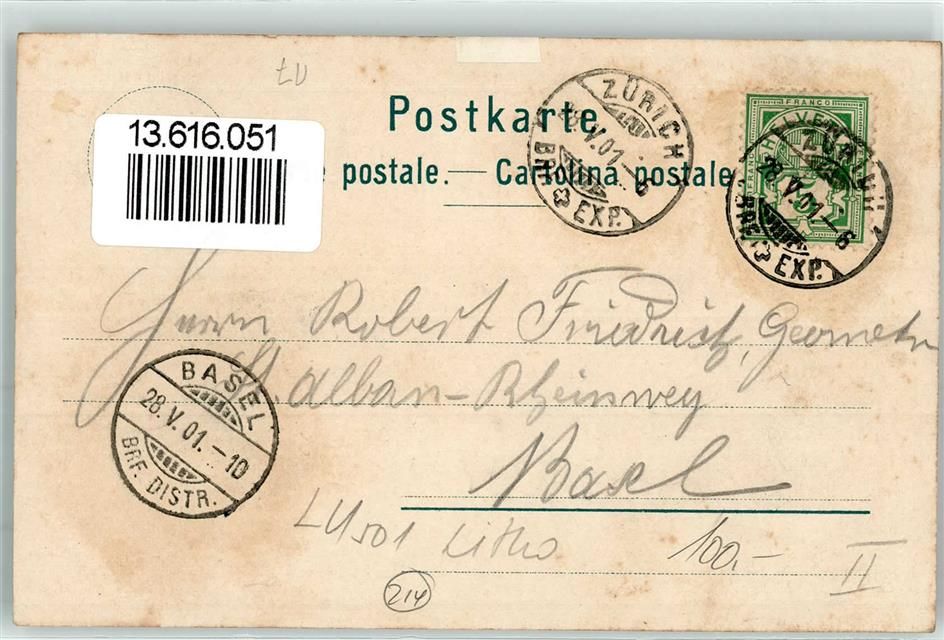 LU
Postkarte.
13.616.051
e postale. — Cartolina postale
ZÜRICH
28.V.01.-6
BRF. EXP.
FRANCO
HELVETIA
ZÜRICH
28.V.01.-6
BRF. EXP.
Herrn Robert Friedrich, Geometer
St. Alban-Rheinweg
Basel
BASEL
28.V.01.-10
BRF. DISTR.
Litho 100.- II
214